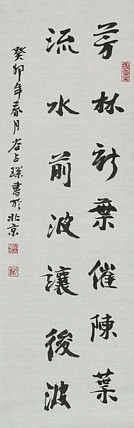 芳林新葉催陳葉
流水前波讓後波
癸卯年春月谷占琛書於北京